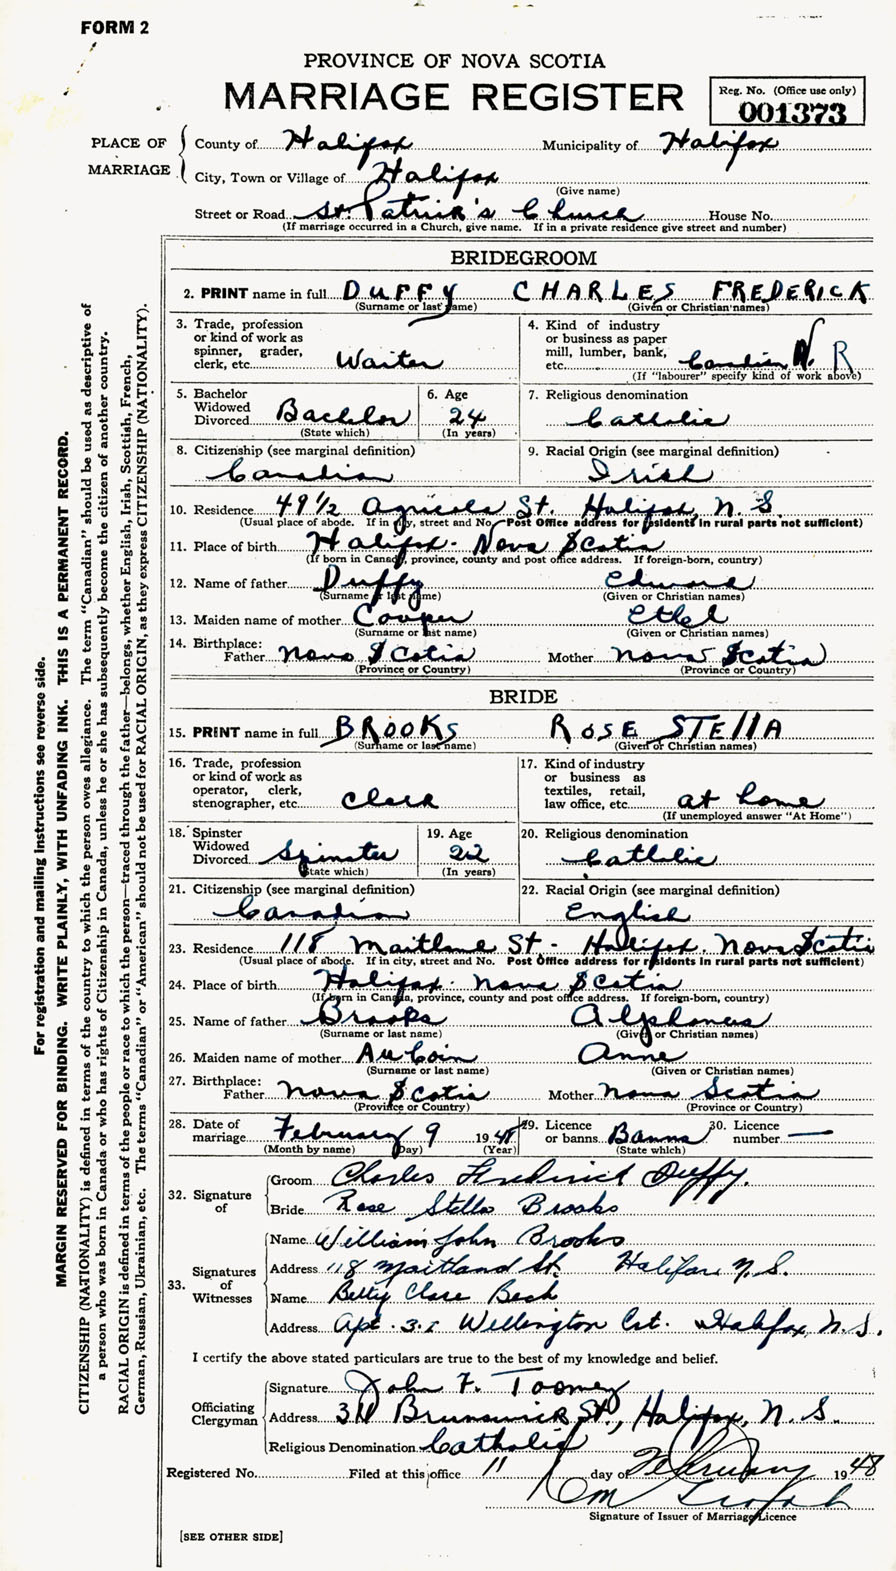 FORM 2
PROVINCE OF NOVA SCOTIA
MARRIAGE REGISTER
Reg. No. (Office use only)
001373
PLACE OF MARRIAGE
County of Halifax Municipality of Halifax
City, Town or Village of Halifax
(Give name)
Street or Road St. Patrick's Church House No.
(If marriage occurred in a Church, give name. If in a private residence give street and number)
BRIDEGROOM
2. PRINT name in full DUFFY CHARLES FREDERICK
(Surname or last name) (Given or Christian names)
3. Trade, profession or kind of work as spinner, grader, clerk, etc. Waiter
4. Kind of industry or business as paper mill, lumber, bank, etc. Canadian N. R
(If "labourer" specify kind of work above)
5. Bachelor Widowed Divorced Bachelor
(State which)
6. Age 24
(In years)
7. Religious denomination
Catholic
8. Citizenship (see marginal definition)
Canadian
9. Racial Origin (see marginal definition)
Irish
10. Residence 49 1/2 Agricola St. Halifax, N. S.
(Usual place of abode. If in city, street and No. Post Office address for residents in rural parts not sufficient)
11. Place of birth Halifax - Nova Scotia
(If born in Canada, province, county and post office address. If foreign-born, country)
12. Name of father Duffy Edward
(Surname or last name) (Given or Christian names)
13. Maiden name of mother Cooper Ethel
(Surname or last name) (Given or Christian names)
14. Birthplace:
Father Nova Scotia Mother Nova Scotia
(Province or Country) (Province or Country)
BRIDE
15. PRINT name in full BROOKS ROSE STELLA
(Surname or last name) (Given or Christian names)
16. Trade, profession or kind of work as operator, clerk, stenographer, etc. Clerk
17. Kind of industry or business as textiles, retail, law office, etc. at home
(If unemployed answer "At Home")
18. Spinster Widowed Divorced Spinster
(State which)
19. Age 22
(In years)
20. Religious denomination
Catholic
21. Citizenship (see marginal definition)
Canadian
22. Racial Origin (see marginal definition)
English
23. Residence 118 Maitland St - Halifax. Nova Scotia
(Usual place of abode. If in city, street and No. Post Office address for residents in rural parts not sufficient)
24. Place of birth Halifax - Nova Scotia
(If born in Canada, province, county and post office address. If foreign-born, country)
25. Name of father Brooks Alphonsus
(Surname or last name) (Given or Christian names)
26. Maiden name of mother AuCoin Anne
(Surname or last name) (Given or Christian names)
27. Birthplace:
Father Nova Scotia Mother Nova Scotia
(Province or Country) (Province or Country)
28. Date of marriage February 9 1948
(Month by name) (Day) (Year)
29. Licence or banns Banns
(State which)
30. Licence number —
32. Signature of
Groom Charles Frederick Duffy.
Bride Rose Stella Brooks
33. Signatures of Witnesses
Name William John Brooks
Address 118 Maitland St. Halifax N. S.
Name Betty Clare Beck
Address Apt. 31 Wellington Crt. Halifax, N. S.
I certify the above stated particulars are true to the best of my knowledge and belief.
Officiating Clergyman
Signature John F. Toomey
Address Brunswick St., Halifax, N. S.
Religious Denomination Catholic
Registered No. Filed at this office 11 day of February 1948
Signature of Issuer of Marriage Licence
[SEE OTHER SIDE]
For registration and mailing instructions see reverse side.
MARGIN RESERVED FOR BINDING. WRITE PLAINLY, WITH UNFADING INK. THIS IS A PERMANENT RECORD.
CITIZENSHIP (NATIONALITY) is defined in terms of the country to which the person owes allegiance. The term "Canadian" should be used as descriptive of
a person who was born in Canada or who has rights of Citizenship in Canada, unless he or she has subsequently become the citizen of another country.
RACIAL ORIGIN is defined in terms of the people or race to which the person—traced through the father—belongs, whether English, Irish, Scottish, French,
German, Russian, Ukrainian, etc. The terms "Canadian" or "American" should not be used for RACIAL ORIGIN, as they express CITIZENSHIP (NATIONALITY).